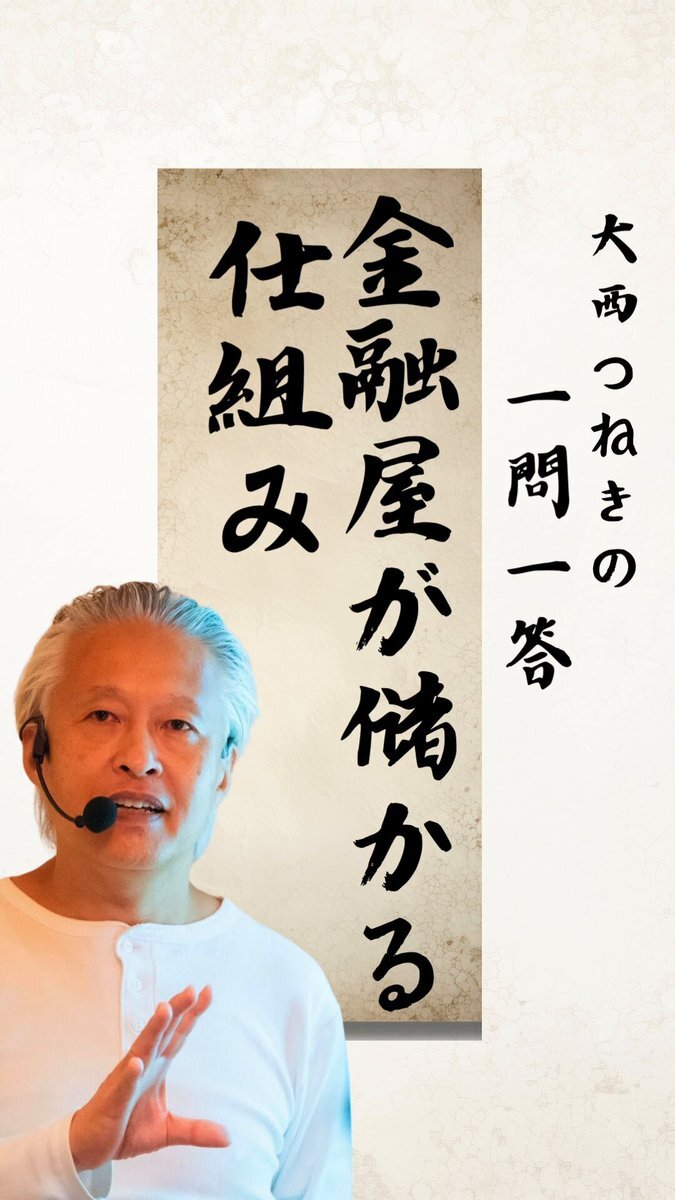 大西つねきの
一問一答
金融屋が儲かる
仕組み